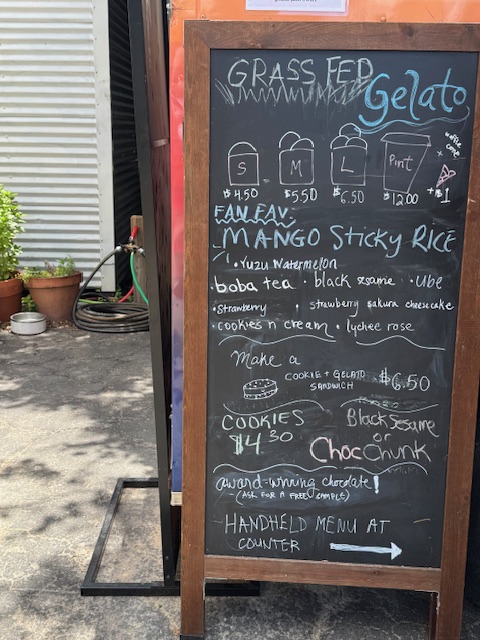 GRASS FED
Gelato
S M L Pint
waffle cone
$4.50 $5.50 $6.50 $12.00 +$1
FAN FAV:
MANGO Sticky RICE
• Yuzu Watermelon
• boba tea • black sesame • Ube
• Strawberry strawberry sakura cheesecake
• cookies n cream • lychee rose
Make a
COOKIE + GELATO $6.50
SANDWICH
COOKIES Black Sesame
$4.30 or
Choc Chunk
award-winning chocolate!
(ASK FOR A FREE SAMPLE)
HANDHELD MENU AT
COUNTER